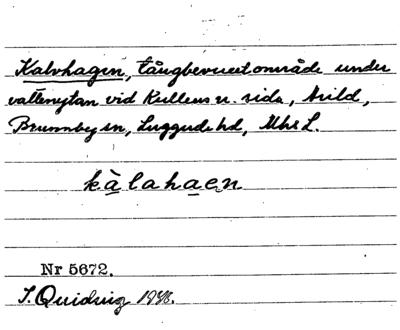 Kalvhagen, tångbevuxet område under
vattenytan vid Kullens n. sida, Arild,
Brunnby sn, Luggude hd, Mhs L.
kàlahaen
Nr 5672.
I. Quidvig 1936.